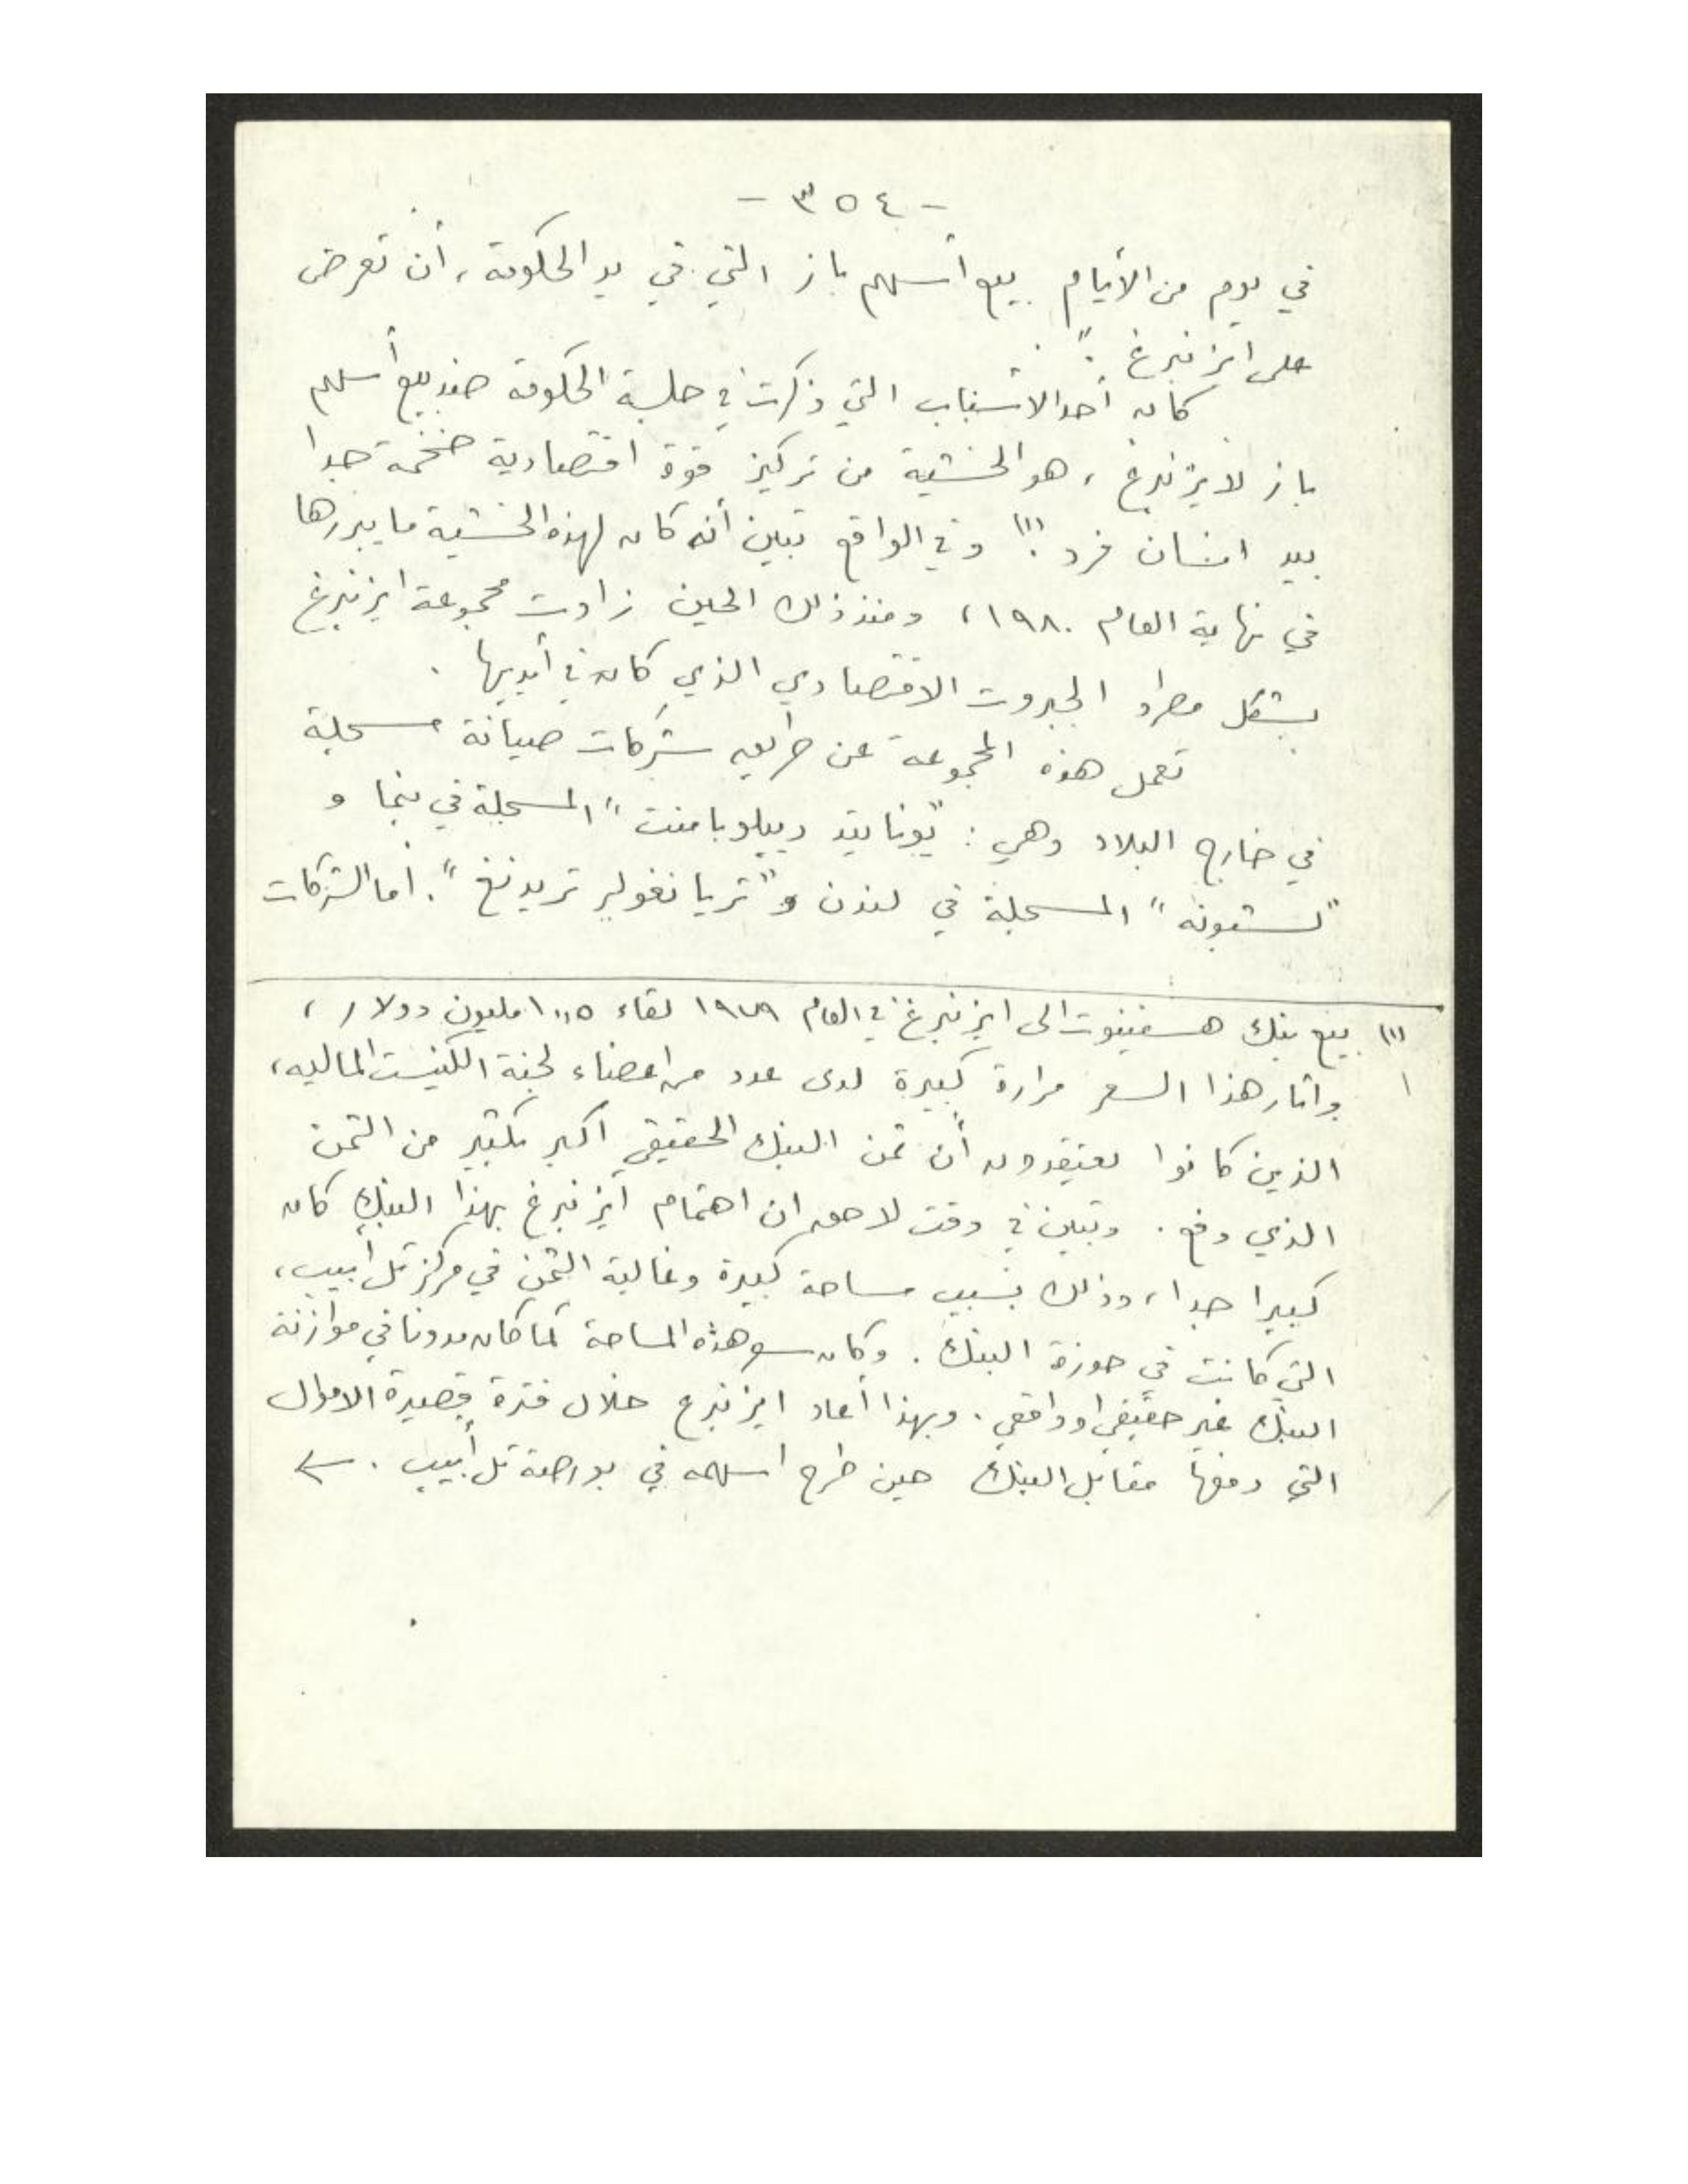 - ٣٥٤ -
في يوم من الأيام بيع أسهم باز التي في يد الحكومة، أن تعرض
على ايزنبرغ".
كان أحد الأسباب التي ذكرت في جلسة الحكومة ضد بيع أسهم
باز لايزنبرغ، هو الخشية من تركيز قوة اقتصادية ضخمة جدا
بيد انسان فرد.(١) وفي الواقع تبين أنه كان لهذه الخشية ما يبررها
في نهاية العام ١٩٨٠، ومنذ ذلك الحين زادت مجموعة ايزنبرغ
بشكل مطرد الجبروت الاقتصادي الذي كان في أيديها.
تعمل هذه المجموعة عن طريق شركات صيانة مسجلة
في خارج البلاد وهي: "يونايتد ديبلوبامنت" المسجلة في بنما و
"لستبونه" المسجلة في لندن و"تريانغولر تريدنغ". أما الشركات
(١) بيع بنك هسفينوت الى ايزنبرغ في العام ١٩٧٩ لقاء ١٠,٥ مليون دولار،
واثار هذا السعر مرارة كبيرة لدى عدد من اعضاء لجنة الكنيست الماليه،
الذين كانوا يعتقدون أن ثمن البنك الحقيقي اكبر بكثير من الثمن
الذي دفع. وتبين في وقت لاحق ان اهتمام ايزنبرغ بهذا البنك كان
كبيرا جدا، وذلك بسبب مساحة كبيرة وغالية الثمن في مركز تل أبيب،
التي كانت في حوزة البنك. وكان سعر هذه المساحة كما كان مدونا في موازنة
البنك غير حقيقي او واقعي. وبهذا أعاد ايزنبرغ خلال فترة قصيرة الاموال
التي دفعها مقابل البنك حين طرح اسهمه في بورصة تل أبيب. ←